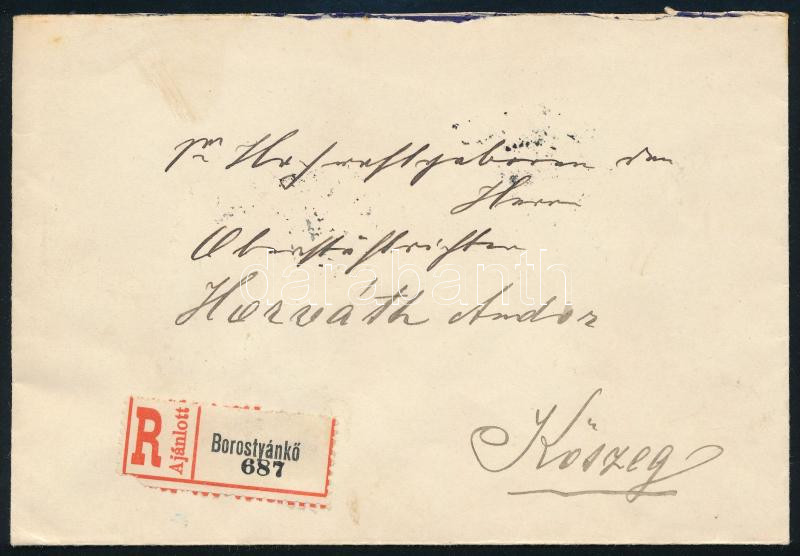 Hochwohlgeboren den
Herrn
Oberstuhlrichter
Horváth Andor
Kőszeg
R
Ajánlott
Borostyánkő
687
darabanth